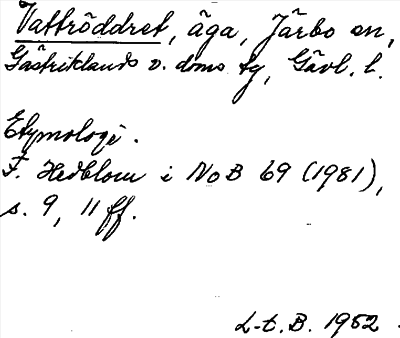 Vattröddret, äga, Järbo sn,
Gästriklands v. doms tg, Gävl. l.
Etymologi.
F. Hedblom i NoB 69 (1981),
s. 9, 11 ff.
L-t. B. 1952